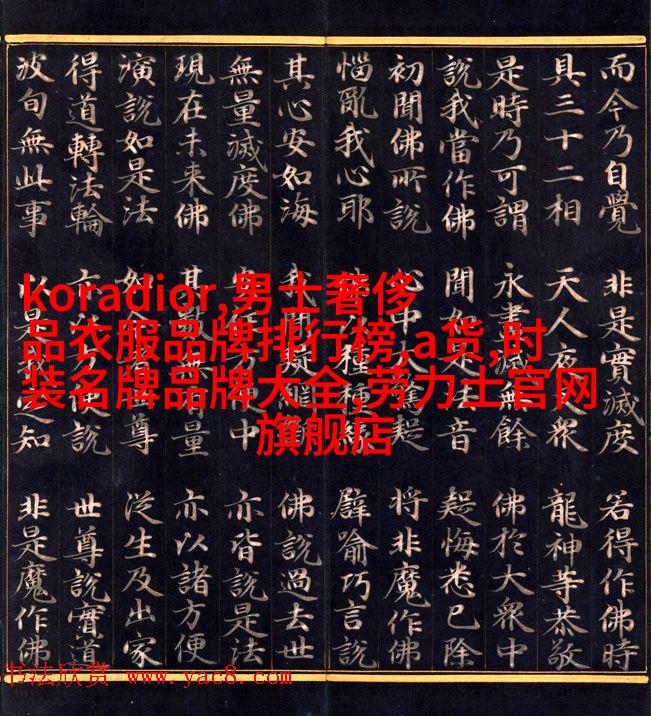 而今乃自覺 非是實滅度 若得作佛時
具三十二相 天人夜眾 龍神等恭敬
是時乃可謂 永盡滅無餘 佛於大眾中
說我當作佛 聞如法音 疑悔悉已除
初聞佛所說 心中大驚疑 將非魔作佛
惱亂我心耶 種種 譬喻巧言說
其心安如海 我聞疑 佛說過去世
無量滅度佛 安中 亦皆說是法
現在未來佛 其數無量 亦以諸方便
演說如是法 如今尊 從生及出家
得道轉法輪 亦以方便說 世尊說實道
波旬無此事 以是我知 非是魔作佛
koradior,男士奢侈
品衣服品牌排行榜,a货,时
装名牌品牌大全,劳力士官网
旗舰店
书法欣赏 www.yac8.com